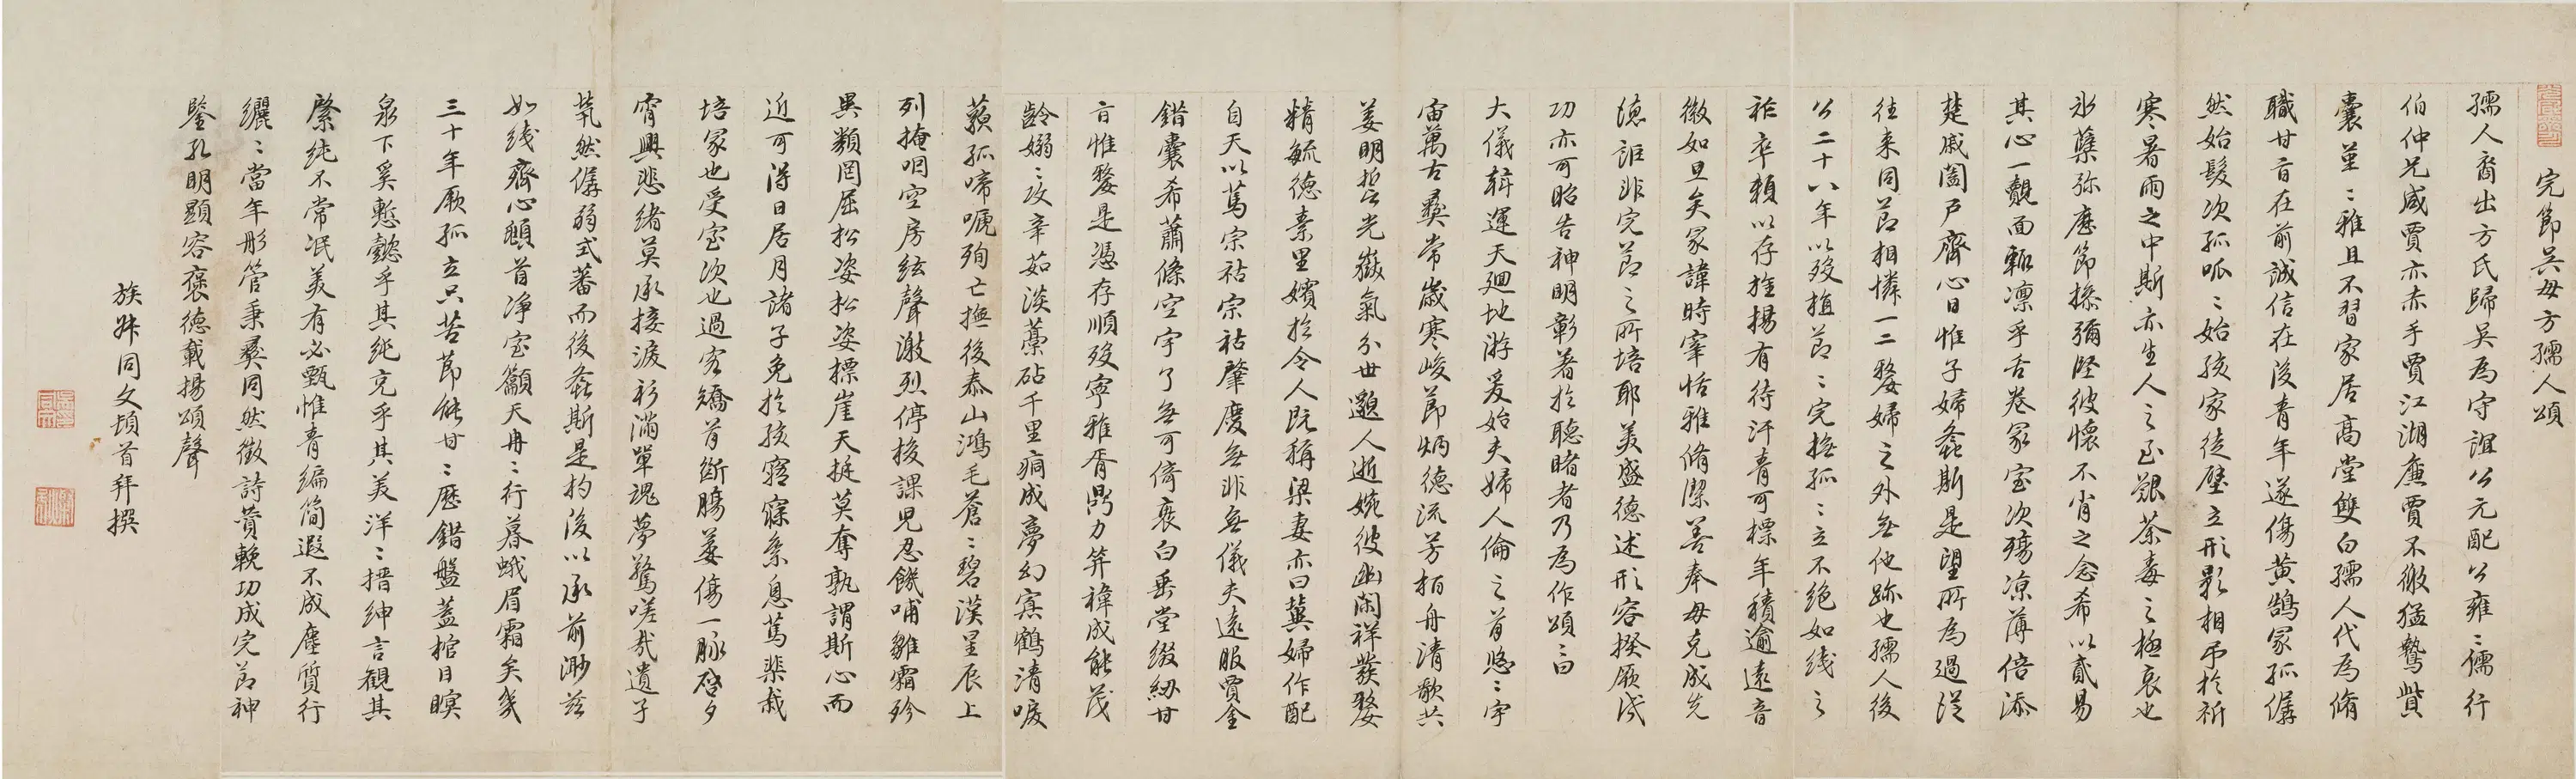 完節吳母方孺人頌
孺人裔出方氏歸吳為守誼公元配公雍〻儒行
伯仲兄咸賈亦赤手賈江湖廉賈不徼猛鷙貲
囊堇〻雅且不習家居高堂雙白孺人代為脩
職甘旨在前誠信在後青年遂傷黃鵠冢孤僝
然始髮次孤呱〻始孩家徒壁立形影相弔於祈
寒暑雨之中斯亦生人之至艱荼毒之極哀也
氷蘗弥歷節操彌堅彼懷不肖之念希以貳易
其心一覿面輒凛乎舌卷冢室次殤凉薄倍添
楚戚闔戶齊心日惟子婦螽斯是望所為過從
往来同節相憐一二嫠婦之外無他跡也孺人後
公二十八年以歿植節〻完撫孤〻立不絕如綫之
祚卒賴以存旌揚有待汗青可標年積逾遠音
徽如旦矣冢諱時宰恬雅脩潔善奉母克成先
德詎非完節之所培耶美盛德述形容揆厥成
功亦可昭告神明彰著於聽睹者乃為作頌〻曰
大儀斡運天廻地游爰始夫婦人倫之首悠〻宇
宙萬古彝常歲寒峻節炳德流芳栢舟清歌共
姜明哲光嶽氣分世邈人逝婉彼幽閑祥發婺
精毓德素里嬪於令人既稱梁妻亦曰冀婦作配
自天以篤宗祜宗祜肇慶無非無儀夫遠服賈金
錯囊希蕭條空宇了無可倚衰白垂堂綴紉甘
旨惟嫠是憑存順歿寧雅胥鼎力笄褘成能茂
齡嫋〻攻辛茹淡藁砧千里痌成夢幻寡鶴清唳
藐孤啼嗄殉亡撫後泰山鴻毛蒼〻碧漢星辰上
列掩咽空房絃聲激烈停梭課兒忍饑哺雛霜矜
異類罔屈松姿松姿摽崖天挺莫奪孰謂斯心而
近可得日居月諸子免於孩窹寐条息篤棐栽
培冢也受室次也過客矯首斷腸萎傷一脉啓夕
霄興悲緒莫承接淚衫滿單魂夢驚嗟哉遺子
煢然僝弱式蕃而後螽斯是灼後以承前渺茲
如綫齊心頫首净室籲天冉〻行暮蛾眉霜矣幾
三十年厥孤立只苦節能甘〻歷錯盤蓋棺目瞑
泉下奚慙懿乎其純克乎其美洋〻搢紳言観其
縻純不常泯美有必甄惟青編簡遐不成塵質行
纚〻當年彤管秉彝同然徵詩賮輓功成完節神
鑒孔明顯容褒德載揚頌聲
族姪同文頓首拜撰